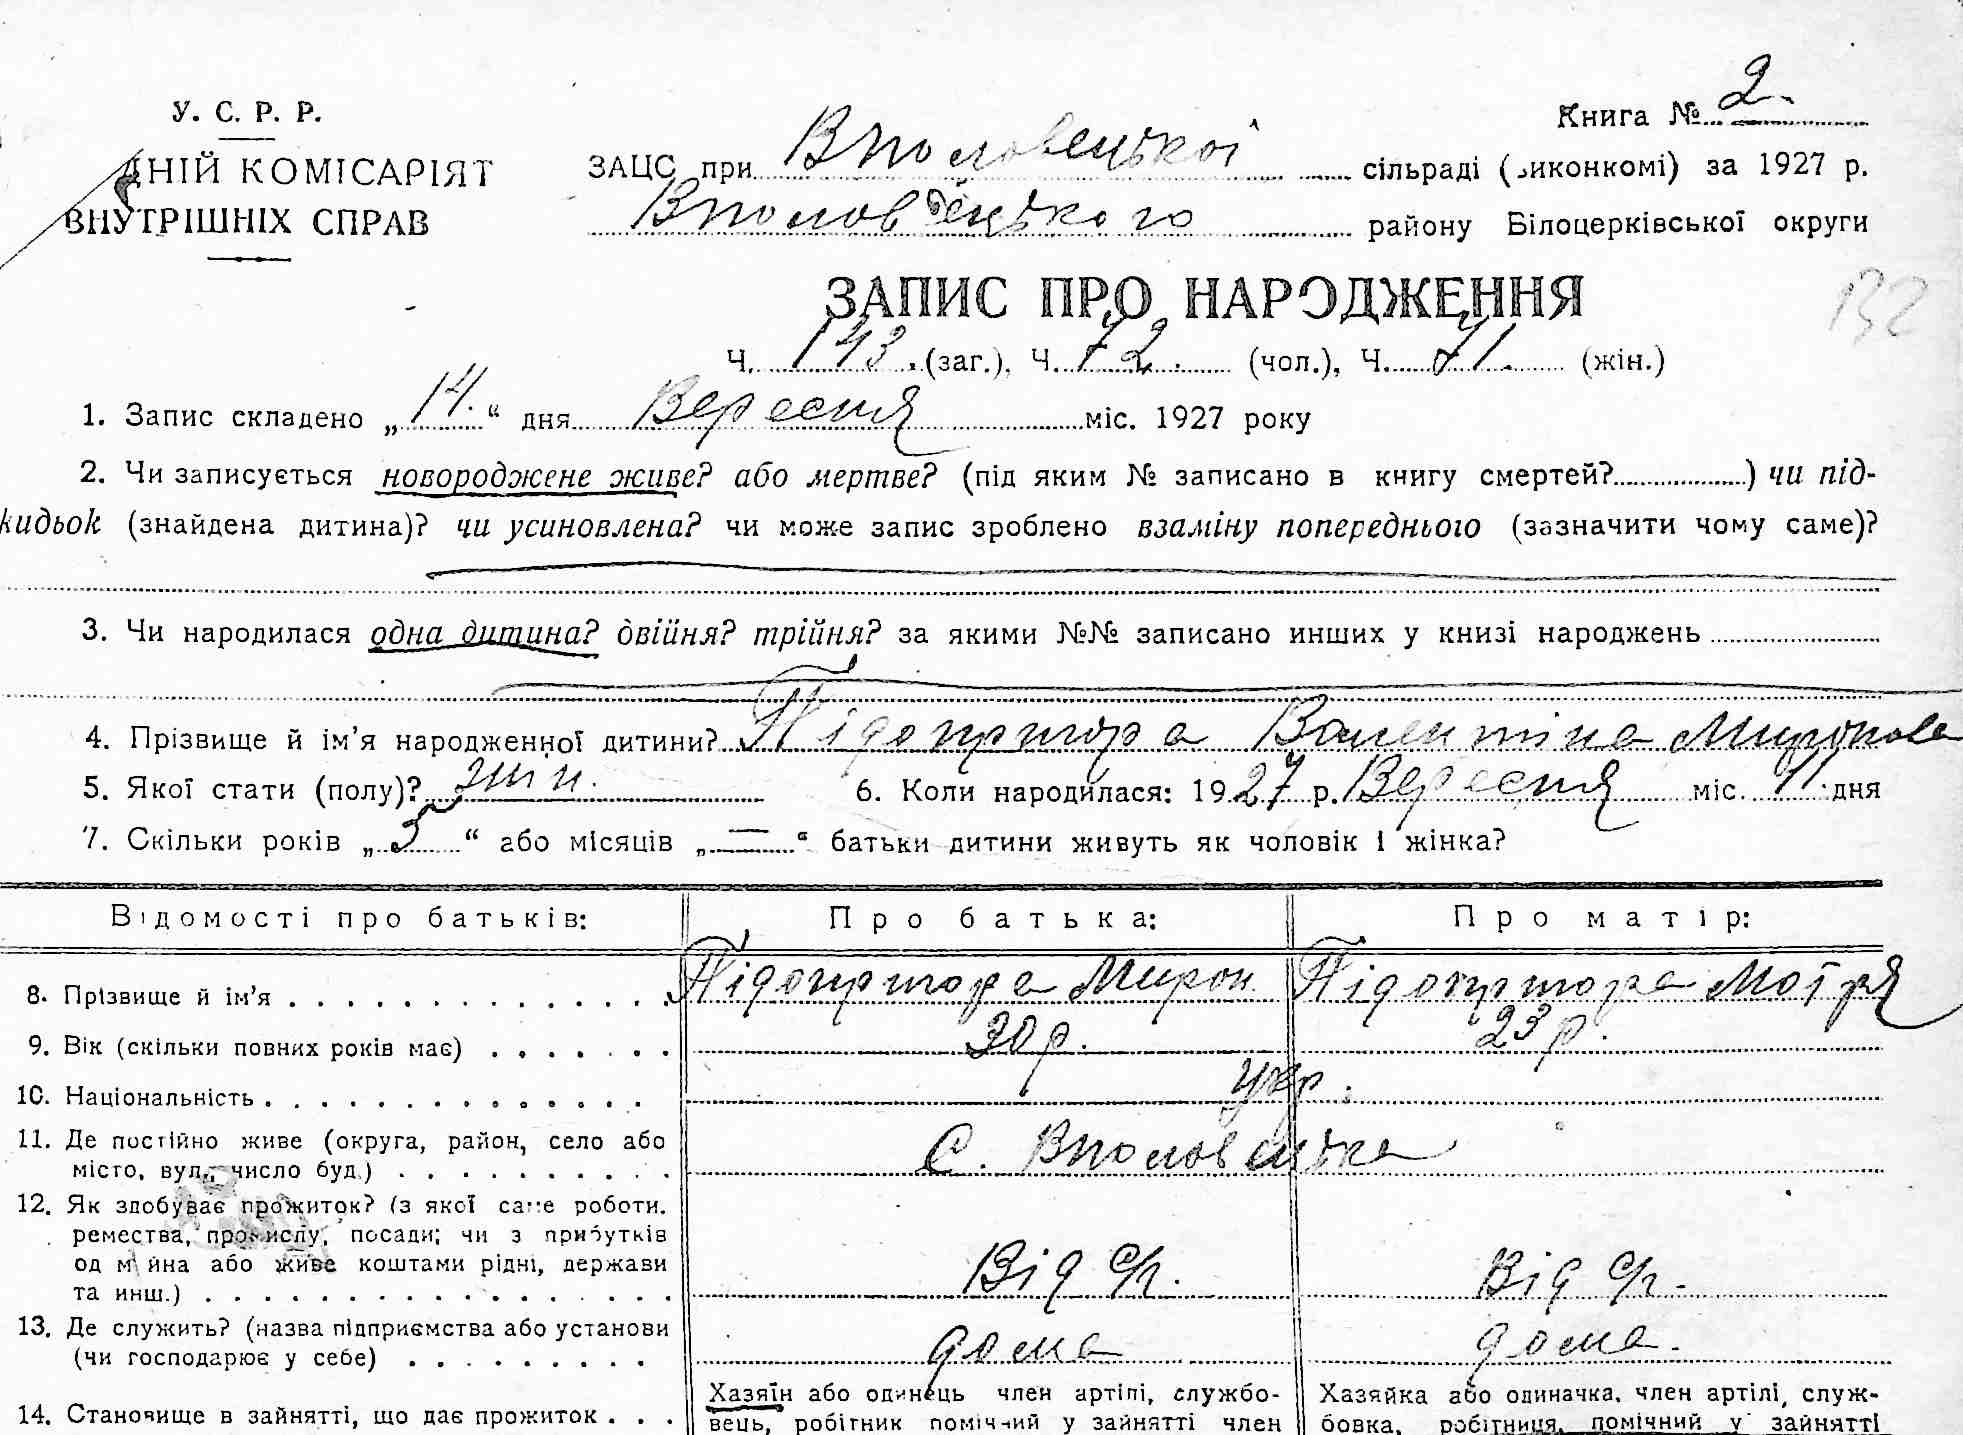 У. С. Р. Р.
Книга № 2
ДНІЙ КОМІСАРІЯТ
ВНУТРІШНІХ СПРАВ
ЗАЦС при Вполовецької сільраді (виконкомі) за 1927 р.
Вполовецького району Білоцерківської округи
ЗАПИС ПРО НАРОДЖЕННЯ
132
Ч. 143. (заг.), Ч. 72. (чол.), Ч. 71. (жін.)
1. Запис складено „14.“ дня Вересня міс. 1927 року
2. Чи записується новороджене живе? або мертве? (під яким № записано в книгу смертей?) чи під-
кидьок (знайдена дитина)? чи усиновлена? чи може запис зроблено взаміну попереднього (зазначити чому саме)?
3. Чи народилася одна дитина? двійня? трійня? за якими №№ записано инших у книзі народжень
4. Прізвище й ім’я народженної дитини? Підопригора Валентіна Миронова
5. Якої стати (полу)? жін. 6. Коли народилася: 1927 р. Вересня міс. 11 дня
7. Скільки років „5“ або місяців „—“ батьки дитини живуть як чоловік і жінка?
Відомості про батьків: Про батька: Про матір:
8. Прізвище й ім’я Підопригора Мирон Підопригора Мотря
9. Вік (скільки повних років має) 30 р. 23 р.
10. Національність укр.
11. Де постійно живе (округа, район, село або
місто, вул., число буд.) С. Вполовецька
12. Як здобуває прожиток? (з якої саме роботи.
ремества, промислу, посади; чи з прибутків
од майна або живе коштами рідні, держави
та инш.) Від с/г. Від с/г.
13. Де служить? (назва підприємства або установи
(чи господарює у себе) дома дома.
14. Становище в зайнятті, що дає прожиток
Хазяїн або одинець член артілі, службо-
вець, робітник помічний у зайнятті член
Хазяйка або одиначка, член артілі, служ-
бовка, робітниця, помічний у зайнятті